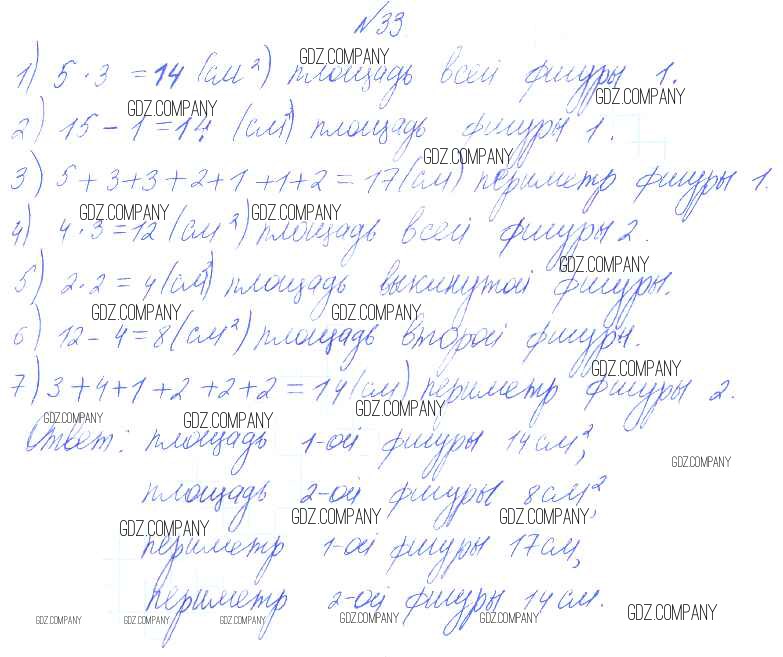 №33
GDZ.COMPANY
1) 5 · 3 = 14 (см²) площадь всей фигуры 1.
GDZ.COMPANY
GDZ.COMPANY
2) 15 - 1 = 14 (см²) площадь фигуры 1.
GDZ.COMPANY
3) 5 + 3 + 3 + 2 + 1 + 1 + 2 = 17 (см) периметр фигуры 1.
GDZ.COMPANY GDZ.COMPANY
4) 4 · 3 = 12 (см²) площадь всей фигуры 2.
GDZ.COMPANY
5) 2 · 2 = 4 (см²) площадь выкинутой фигуры.
GDZ.COMPANY GDZ.COMPANY
6) 12 - 4 = 8 (см²) площадь второй фигуры.
GDZ.COMPANY
7) 3 + 4 + 1 + 2 + 2 + 2 = 14 (см) периметр фигуры 2.
GDZ.COMPANY GDZ.COMPANY GDZ.COMPANY
Ответ: площадь 1-ой фигуры 14 см²,
GDZ.COMPANY
площадь 2-ой фигуры 8 см²,
GDZ.COMPANY GDZ.COMPANY GDZ.COMPANY
периметр 1-ой фигуры 17 см,
периметр 2-ой фигуры 14 см.
GDZ.COMPANY GDZ.COMPANY GDZ.COMPANY GDZ.COMPANY GDZ.COMPANY GDZ.COMPANY